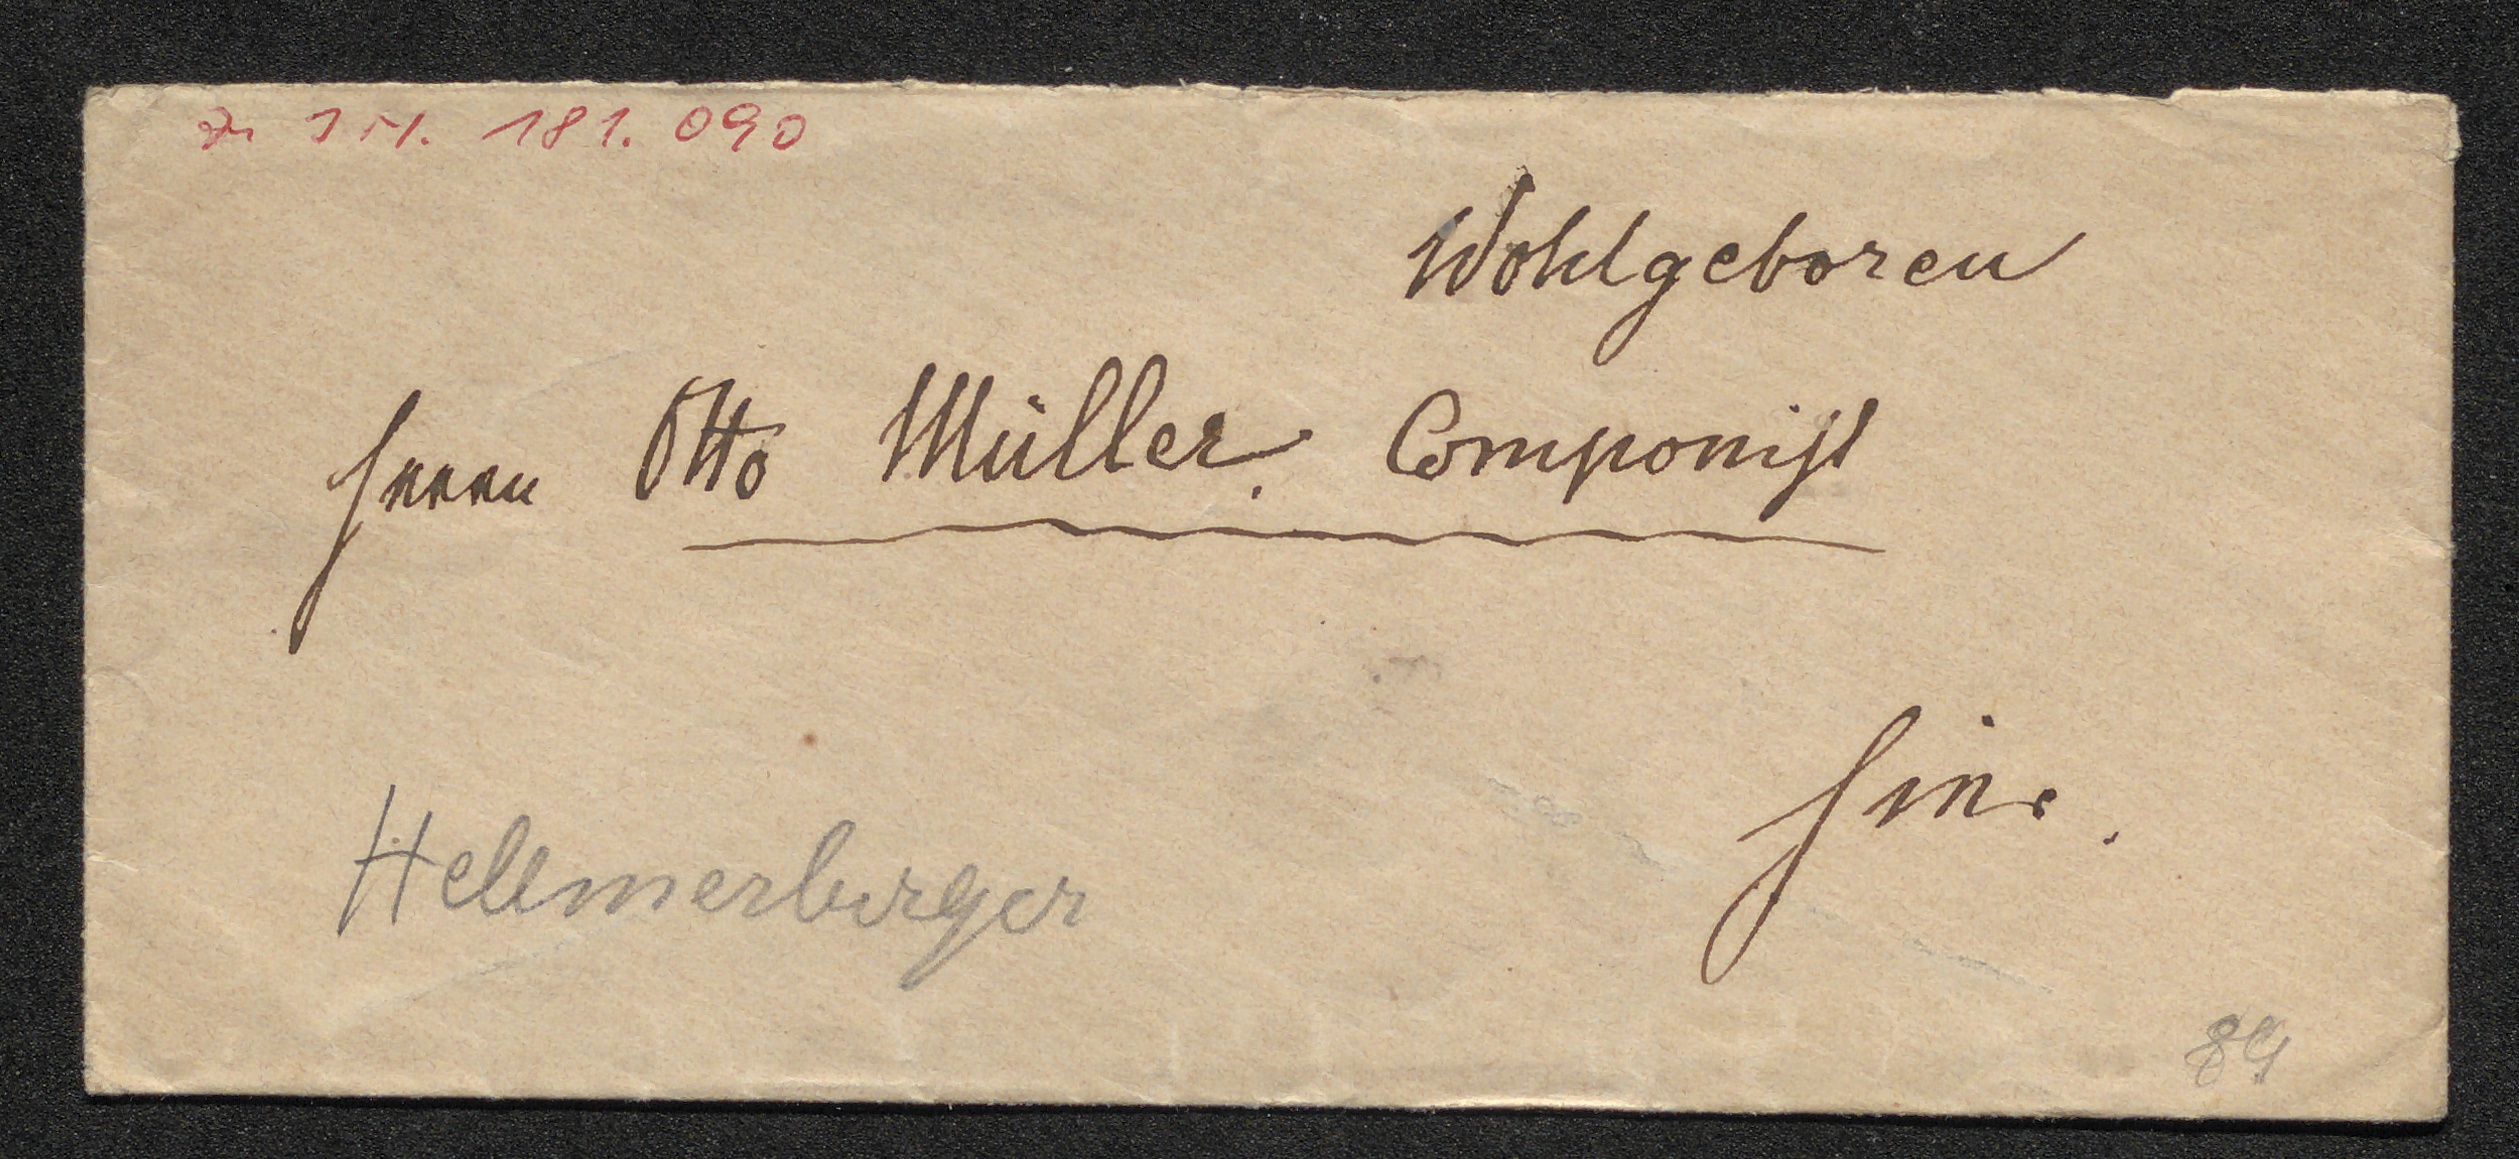 Zu I.N. 181.090
Wohlgeboren
Herrn Otto Müller. Componist
Hier.
Hellmerberger
89